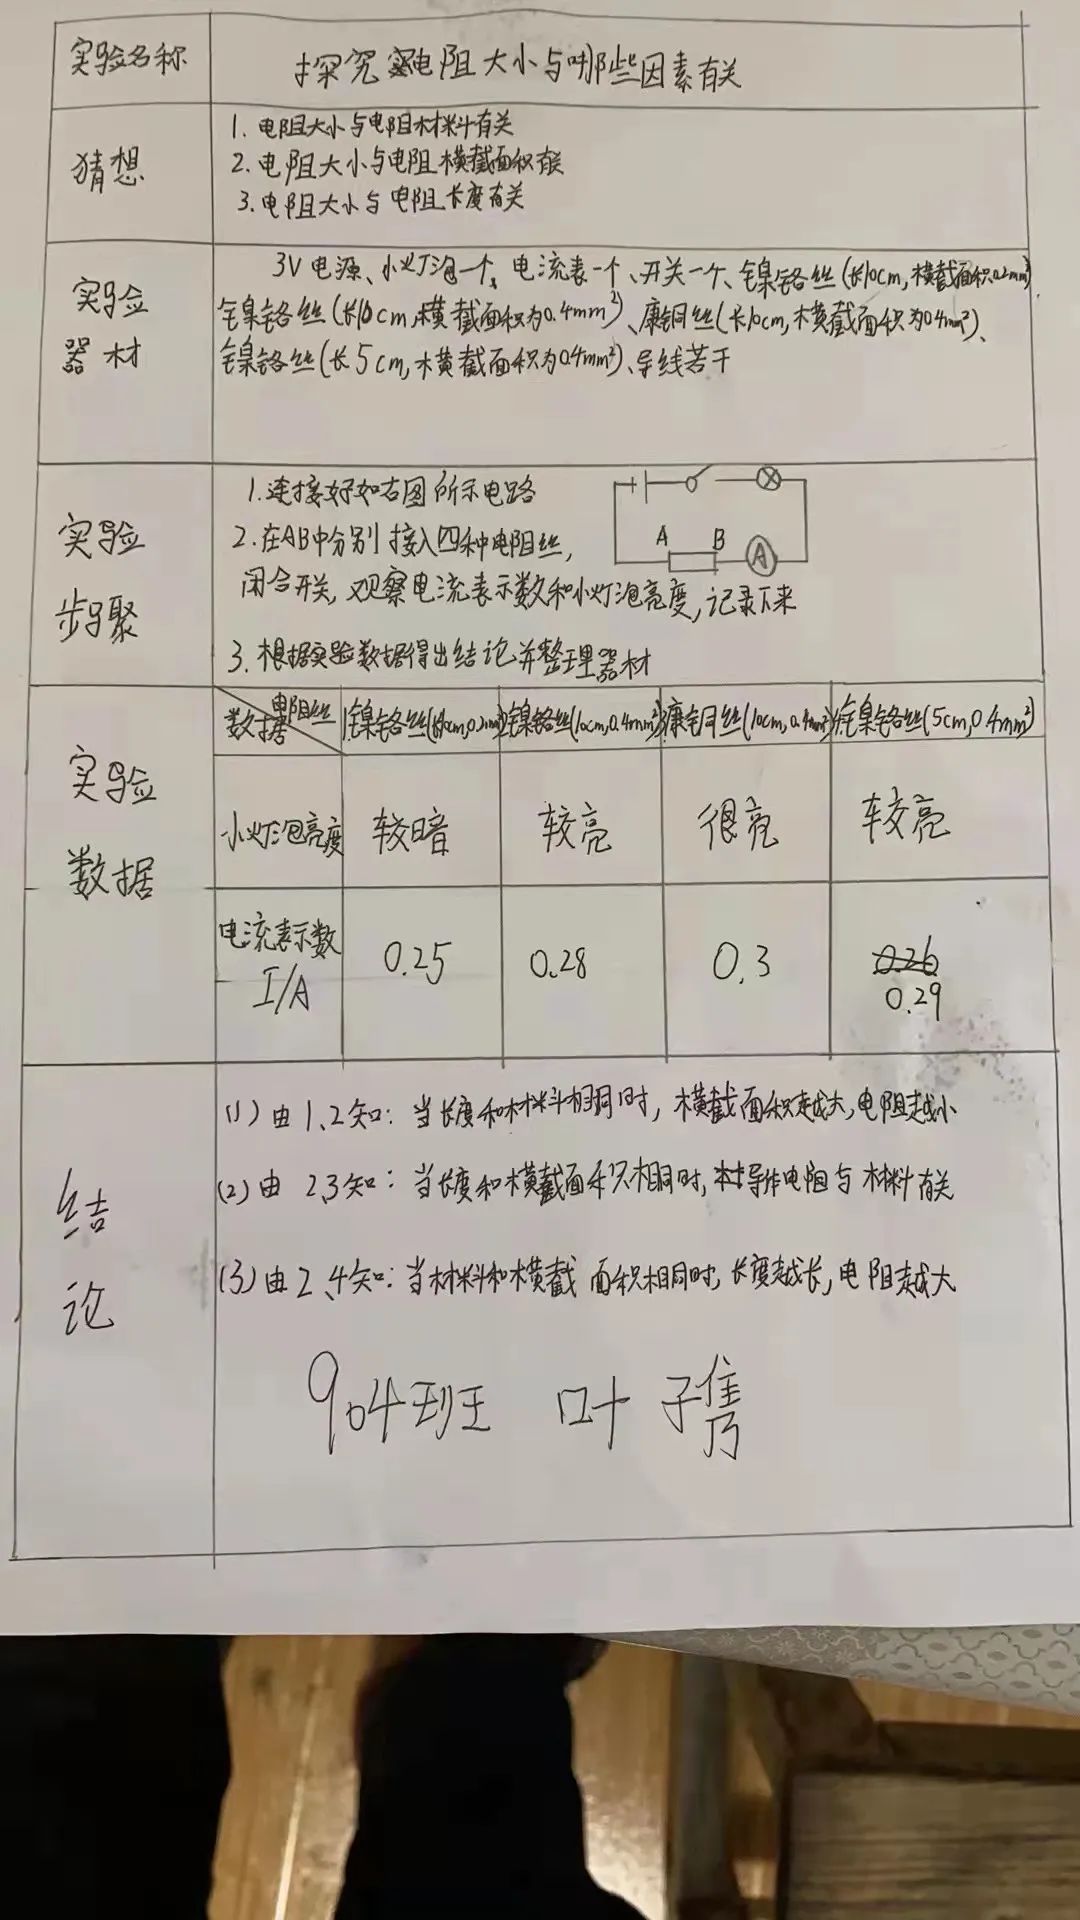 实验名称
探究电阻大小与哪些因素有关
猜想
1. 电阻大小与电阻材料有关
2. 电阻大小与电阻横截面积有关
3. 电阻大小与电阻长度有关
实验器材
3V电源、小灯泡一个、电流表一个、开关一个、镍铬丝(长10cm,横截面积0.2mm²)
镍铬丝(长10cm,横截面积为0.4mm²)、康铜丝(长10cm,横截面积为0.4mm²)、
镍铬丝(长5cm,横截面积为0.4mm²)、导线若干
实验步骤
1. 连接好如右图所示电路
2. 在AB中分别接入四种电阻丝,
闭合开关,观察电流表示数和小灯泡亮度,记录下来
3. 根据实验数据得出结论并整理器材
A B
A
实验数据
数据 电阻丝 1镍铬丝(10cm,0.2mm²) 2镍铬丝(10cm,0.4mm²) 3康铜丝(10cm,0.4mm²) 4镍铬丝(5cm,0.4mm²)
小灯泡亮度 较暗 较亮 很亮 较亮
电流表示数 I/A 0.25 0.28 0.3 0.26
0.29
结论
(1) 由1、2知:当长度和材料相同时,横截面积越大,电阻越小
(2) 由2、3知:当长度和横截面积相同时,导体电阻与材料有关
(3) 由2、4知:当材料和横截面积相同时,长度越长,电阻越大
904班 叶子隽